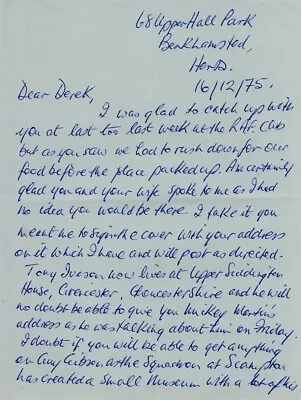 68 Upper Hall Park
Berkhamsted,
Herts.
16/12/75.
Dear Derek,
I was glad to catch up with
you at last too last week at the RAF. Club
but as you saw we had to rush down for our
food before the place packed up. Am certainly
glad you and your wife spoke to me as I had
no idea you would be there. I take it you
meant me to sign the cover with your address
on it which I have and will post as directed.
Tony Iveson now lives at Upper Siddington
House, Cirencester, Gloucestershire and he will
no doubt be able to give you Mickey Martin's
address as he was talking about him on Friday.
I doubt if you will be able to get anything
on Guy Gibson as the Squadron at Scampton
has created a small museum with a lot of his